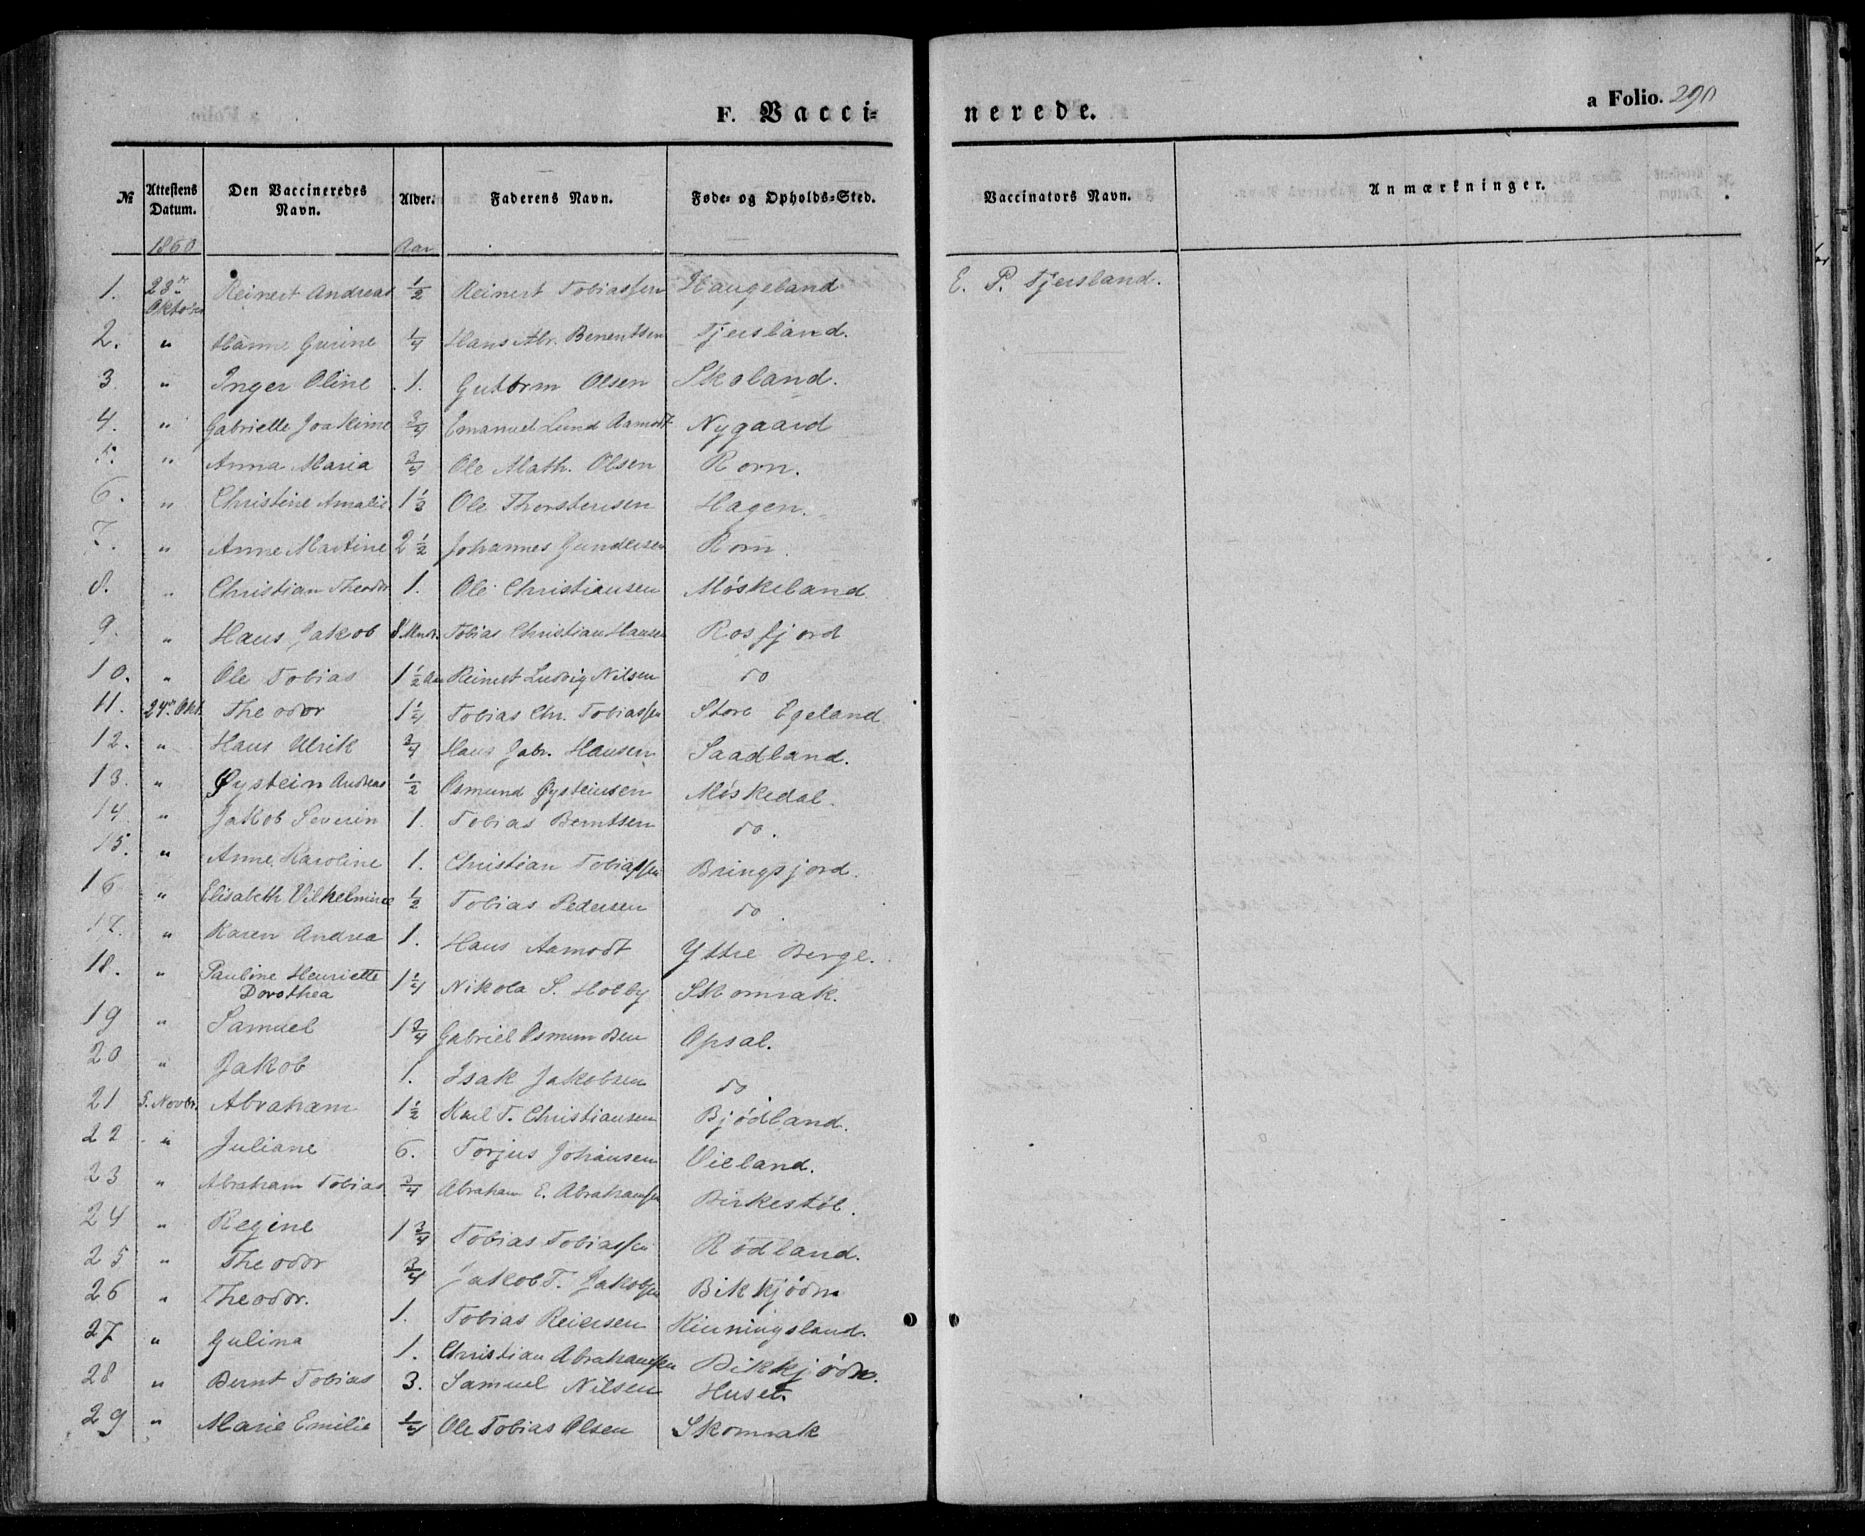 F. Vacci= nerede. a Folio. 290
№ Attestens Datum. Den Vaccineredes Navn. Alder. Faderens Navn. Føde- og Opholds-Sted. Vaccinators Navn. Anmærkninger.
1860 Aar
1. 23de Oktober Reinert Andreas ½ Reinert Tobiassen Haugeland E. P. Tjersland.
2. " Hanne Gurine ¼ Hans Abr. Berentsen Tjersland.
3. " Inger Oline 1. Guttorm Olsen Skoland.
4. " Gabrielle Joakime ¾ Emanuel Lund Aamodt Nygaard
5. " Anna Maria ¾ Ole Math. Olsen Rom.
6. " Christine Amalie 1½ Ole Thorstensen Hagen.
7. " Anne Martine 2½ Johannes Gundersen Rom.
8. " Christian Theodor 1. Ole Christiansen Møskeland
9. " Hans Jakob 8 Mndr. Tobias Christian Hansen Rosfjord
10. " Ole Tobias 1½ Aar Reinert Ludvig Nilsen do
11. 24de Okt. Theodor 1¼ Tobias Chr. Tobiassen Store Egeland
12. " Hans Ulrik ¾ Hans Jabr. Hansen Saadland.
13. " Øystein Andreas ½ Osmund Øysteinsen Møskedal.
14. " Jakob Severin 1. Tobias Berntsen do.
15. " Anne Karoline 1. Christian Tobiassen Bringsjord.
16 " Elisabeth Vilhelmine ½ Tobias Pedersen do.
17. " Karen Andrea 1. Hans Aamodt Yttre Berge.
18. " Pauline Henriette Dorothea 1¼ Nikola S. Holby Skomrak.
19 " Samuel 1¾ Gabriel Osmundsen Opsal.
20 " Jakob 1. Isak Jakobsen do
21 5. Novbr. Abraham 1½ Karl T. Christiansen Bjødland.
22 " Juliane 6. Torjus Johansen Vieland.
23 " Abraham Tobias ¾ Abraham E. Abrahamsen Birkestøl.
24 " Regine 1¾ Tobias Tobiassen Rødland.
25 " Theodor ¾ Jakob T. Jakobsen Bikkjødn
26 " Theodor. 1. Tobias Reiersen Kinningsland.
27 " Gulina 1. Christian Abrahamsen Bikkjødn.
28 " Bernt Tobias 3. Samuel Nilsen Huset.
29 " Marie Emilie ¼ Ole Tobias Olsen Skomrak